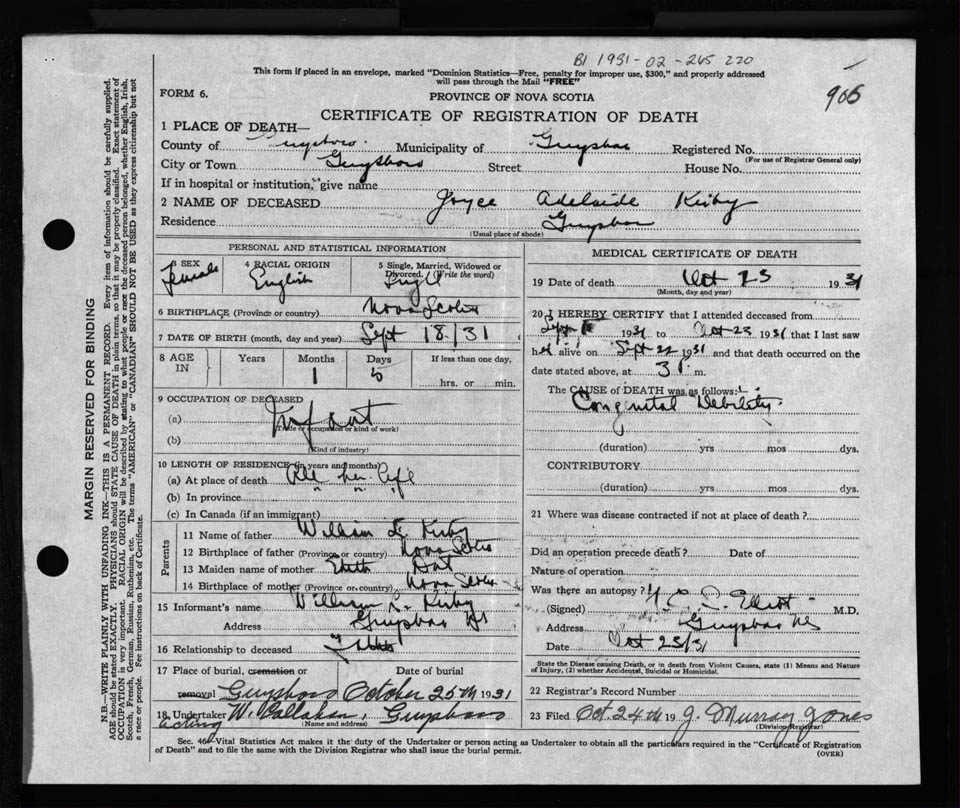 B1 1931-02-265 220
This form if placed in an envelope, marked "Dominion Statistics—Free, penalty for improper use, $300," and properly addressed
will pass through the Mail "FREE"
906
FORM 6.
PROVINCE OF NOVA SCOTIA
CERTIFICATE OF REGISTRATION OF DEATH
1 PLACE OF DEATH—
County of Guysboro. Municipality of Guysboro Registered No.
(For use of Registrar General only)
City or Town Guysboro Street House No.
If in hospital or institution, give name
2 NAME OF DECEASED Joyce Adelaide Kirby
Residence Guysboro
(Usual place of abode)
PERSONAL AND STATISTICAL INFORMATION
3 SEX Female
4 RACIAL ORIGIN English
5 Single, Married, Widowed or Divorced. (Write the word) Single
6 BIRTHPLACE (Province or country) Nova Scotia
7 DATE OF BIRTH (month, day and year) Sept 18/31
8 AGE IN Years Months 1 Days 5 If less than one day, hrs. or min.
9 OCCUPATION OF DECEASED
(a) Infant
(Trade or occupation or kind of work)
(b)
(Kind of industry)
10 LENGTH OF RESIDENCE (in years and months)
(a) At place of death All her life
(b) In province " " "
(c) In Canada (if an immigrant)
Parents
11 Name of father William L Kirby
12 Birthplace of father (Province or country) Nova Scotia
13 Maiden name of mother
14 Birthplace of mother (Province or country) Nova Scotia
15 Informant's name William L. Kirby
Address Guysboro NS
16 Relationship to deceased Father
17 Place of burial, cremation or removal Guysboro
Date of burial October 25th 1931
18 Undertaker acting W. Callahan, Guysboro
(Name and address)
MEDICAL CERTIFICATE OF DEATH
19 Date of death Oct 23 1931
(Month, day and year)
20 I HEREBY CERTIFY that I attended deceased from
Sept 1931 to Oct 23 1931 that I last saw
her alive on Sept 22 1931 and that death occurred on the
date stated above, at 3 m.
The CAUSE of DEATH was as follows:
Congenital Debility
(duration) yrs mos dys.
CONTRIBUTORY
(duration) yrs mos dys.
21 Where was disease contracted if not at place of death?
Did an operation precede death? Date of
Nature of operation
Was there an autopsy?
(Signed) Elliot M.D.
Address Guysboro NS
Date Oct 23/31
State the Disease causing Death, or in death from Violent Causes, state (1) Means and Nature
of Injury, (2) whether Accidental, Suicidal or Homicidal.
22 Registrar's Record Number
23 Filed Oct. 24th 19 J. Murray Jones
(Division Registrar)
Sec. 46—Vital Statistics Act makes it the duty of the Undertaker or person acting as Undertaker to obtain all the particulars required in the "Certificate of Registration
of Death" and to file the same with the Division Registrar who shall issue the burial permit.
(OVER)
MARGIN RESERVED FOR BINDING
N.B.—WRITE PLAINLY WITH UNFADING INK—THIS IS A PERMANENT RECORD. Every item of information should be carefully supplied.
AGE should be stated EXACTLY. PHYSICIANS should STATE CAUSE OF DEATH in plain terms, so that it may be properly classified. Exact statement of
OCCUPATION is very important. RACIAL ORIGIN will be described by stating to what people or race the deceased person belonged, whether English, Irish,
Scotch, French, German, Russian, Ruthenian, etc. The terms "AMERICAN" or "CANADIAN" SHOULD NOT BE USED as they express citizenship but not
a race or people. See instructions on back of Certificate.